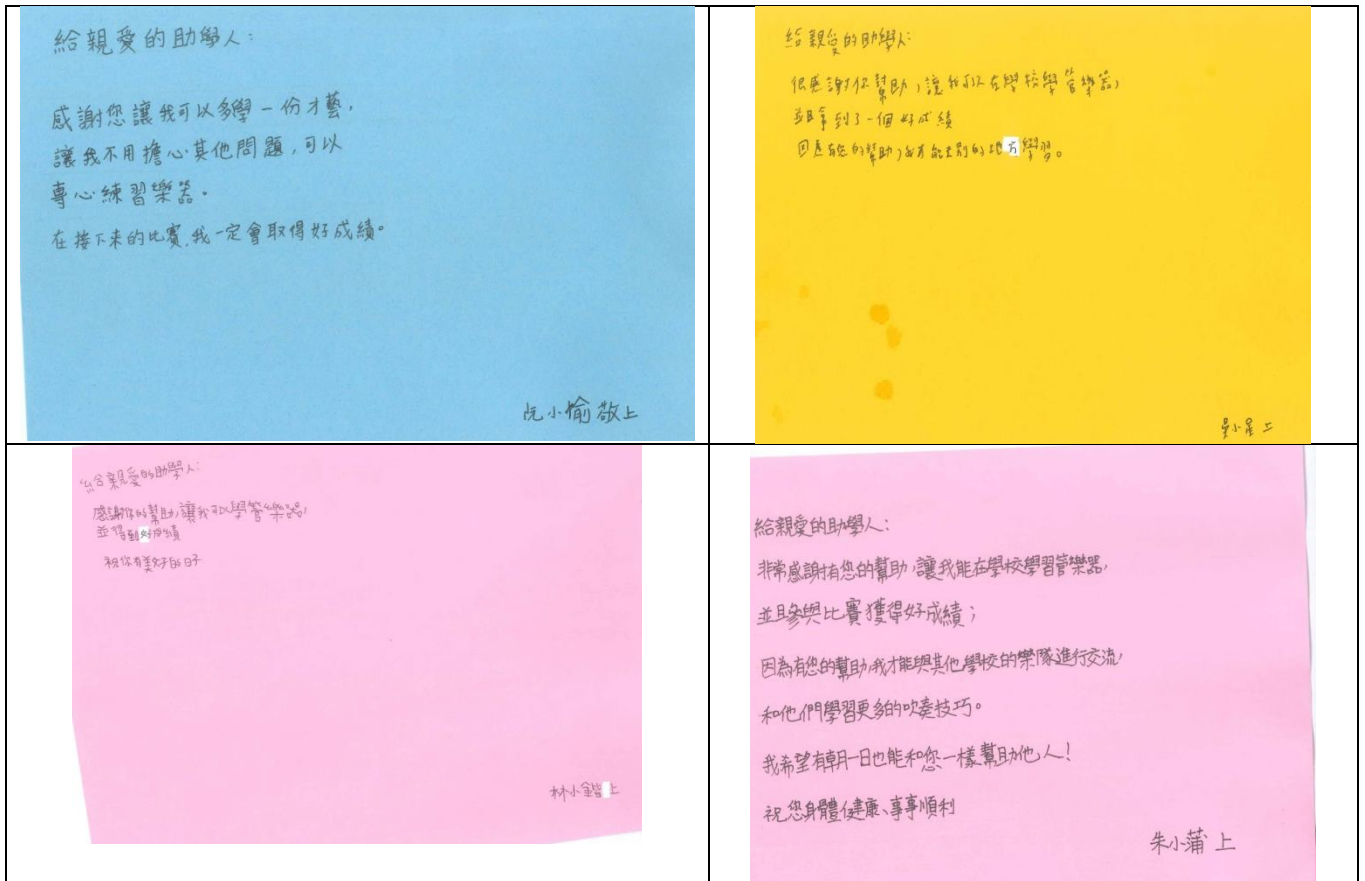 給親愛的助學人：
感謝您讓我可以多學一份才藝，
讓我不用擔心其他問題，可以
專心練習樂器。
在接下來的比賽，我一定會取得好成績。
阮小愉 敬上
給親愛的助學人：
很感謝你幫助，讓我可以在學校學管樂器，
並且拿到了一個好成績
因為有您的幫助，我才能去別的地方學習。
小星 上
給親愛的助學人：
感謝你的幫助，讓我可以學管樂器，
並得到好成績
祝你有美好的日子
林小鍇 上
給親愛的助學人：
非常感謝有您的幫助，讓我能在學校學習管樂器，
並且參與比賽獲得好成績；
因為有您的幫助，我才能與其他學校的樂隊進行交流，
和他們學習更多的吹奏技巧。
我希望有朝一日也能和您一樣幫助他人！
祝您身體健康、事事順利
朱小蒲 上